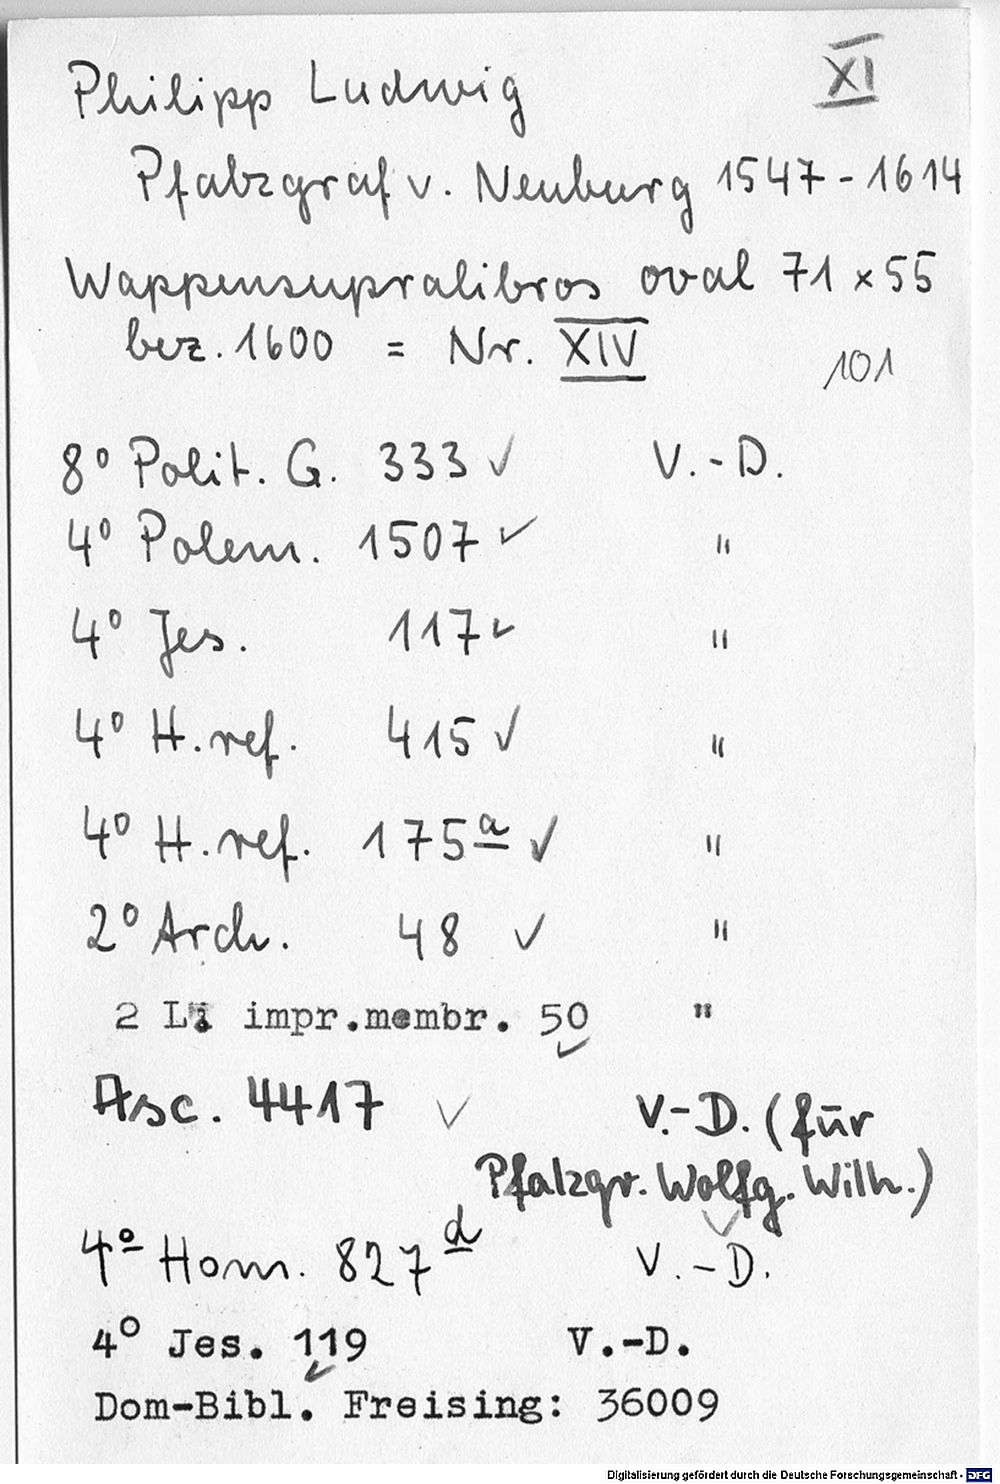 XI
Philipp Ludwig
Pfalzgraf v. Neuburg 1547-1614
Wappensupralibros oval 71 x 55
bez. 1600 = Nr. XIV
101
8° Polit. G. 333 ✓ V.-D.
4° Polem. 1507 ✓ "
4° Jes. 117 ✓ "
4° H. ref. 415 ✓ "
4° H. ref. 175a ✓ "
2° Arch. 48 ✓ "
2 L. impr.membr. 50 ✓ "
Asc. 4417 ✓ V.-D. (für
Pfalzgr. Wolfg. Wilh.)
4° Hom. 827d ✓ V.-D.
4° Jes. 119 ✓ V.-D.
Dom-Bibl. Freising: 36009
Digitalisierung gefördert durch die Deutsche Forschungsgemeinschaft - DFG